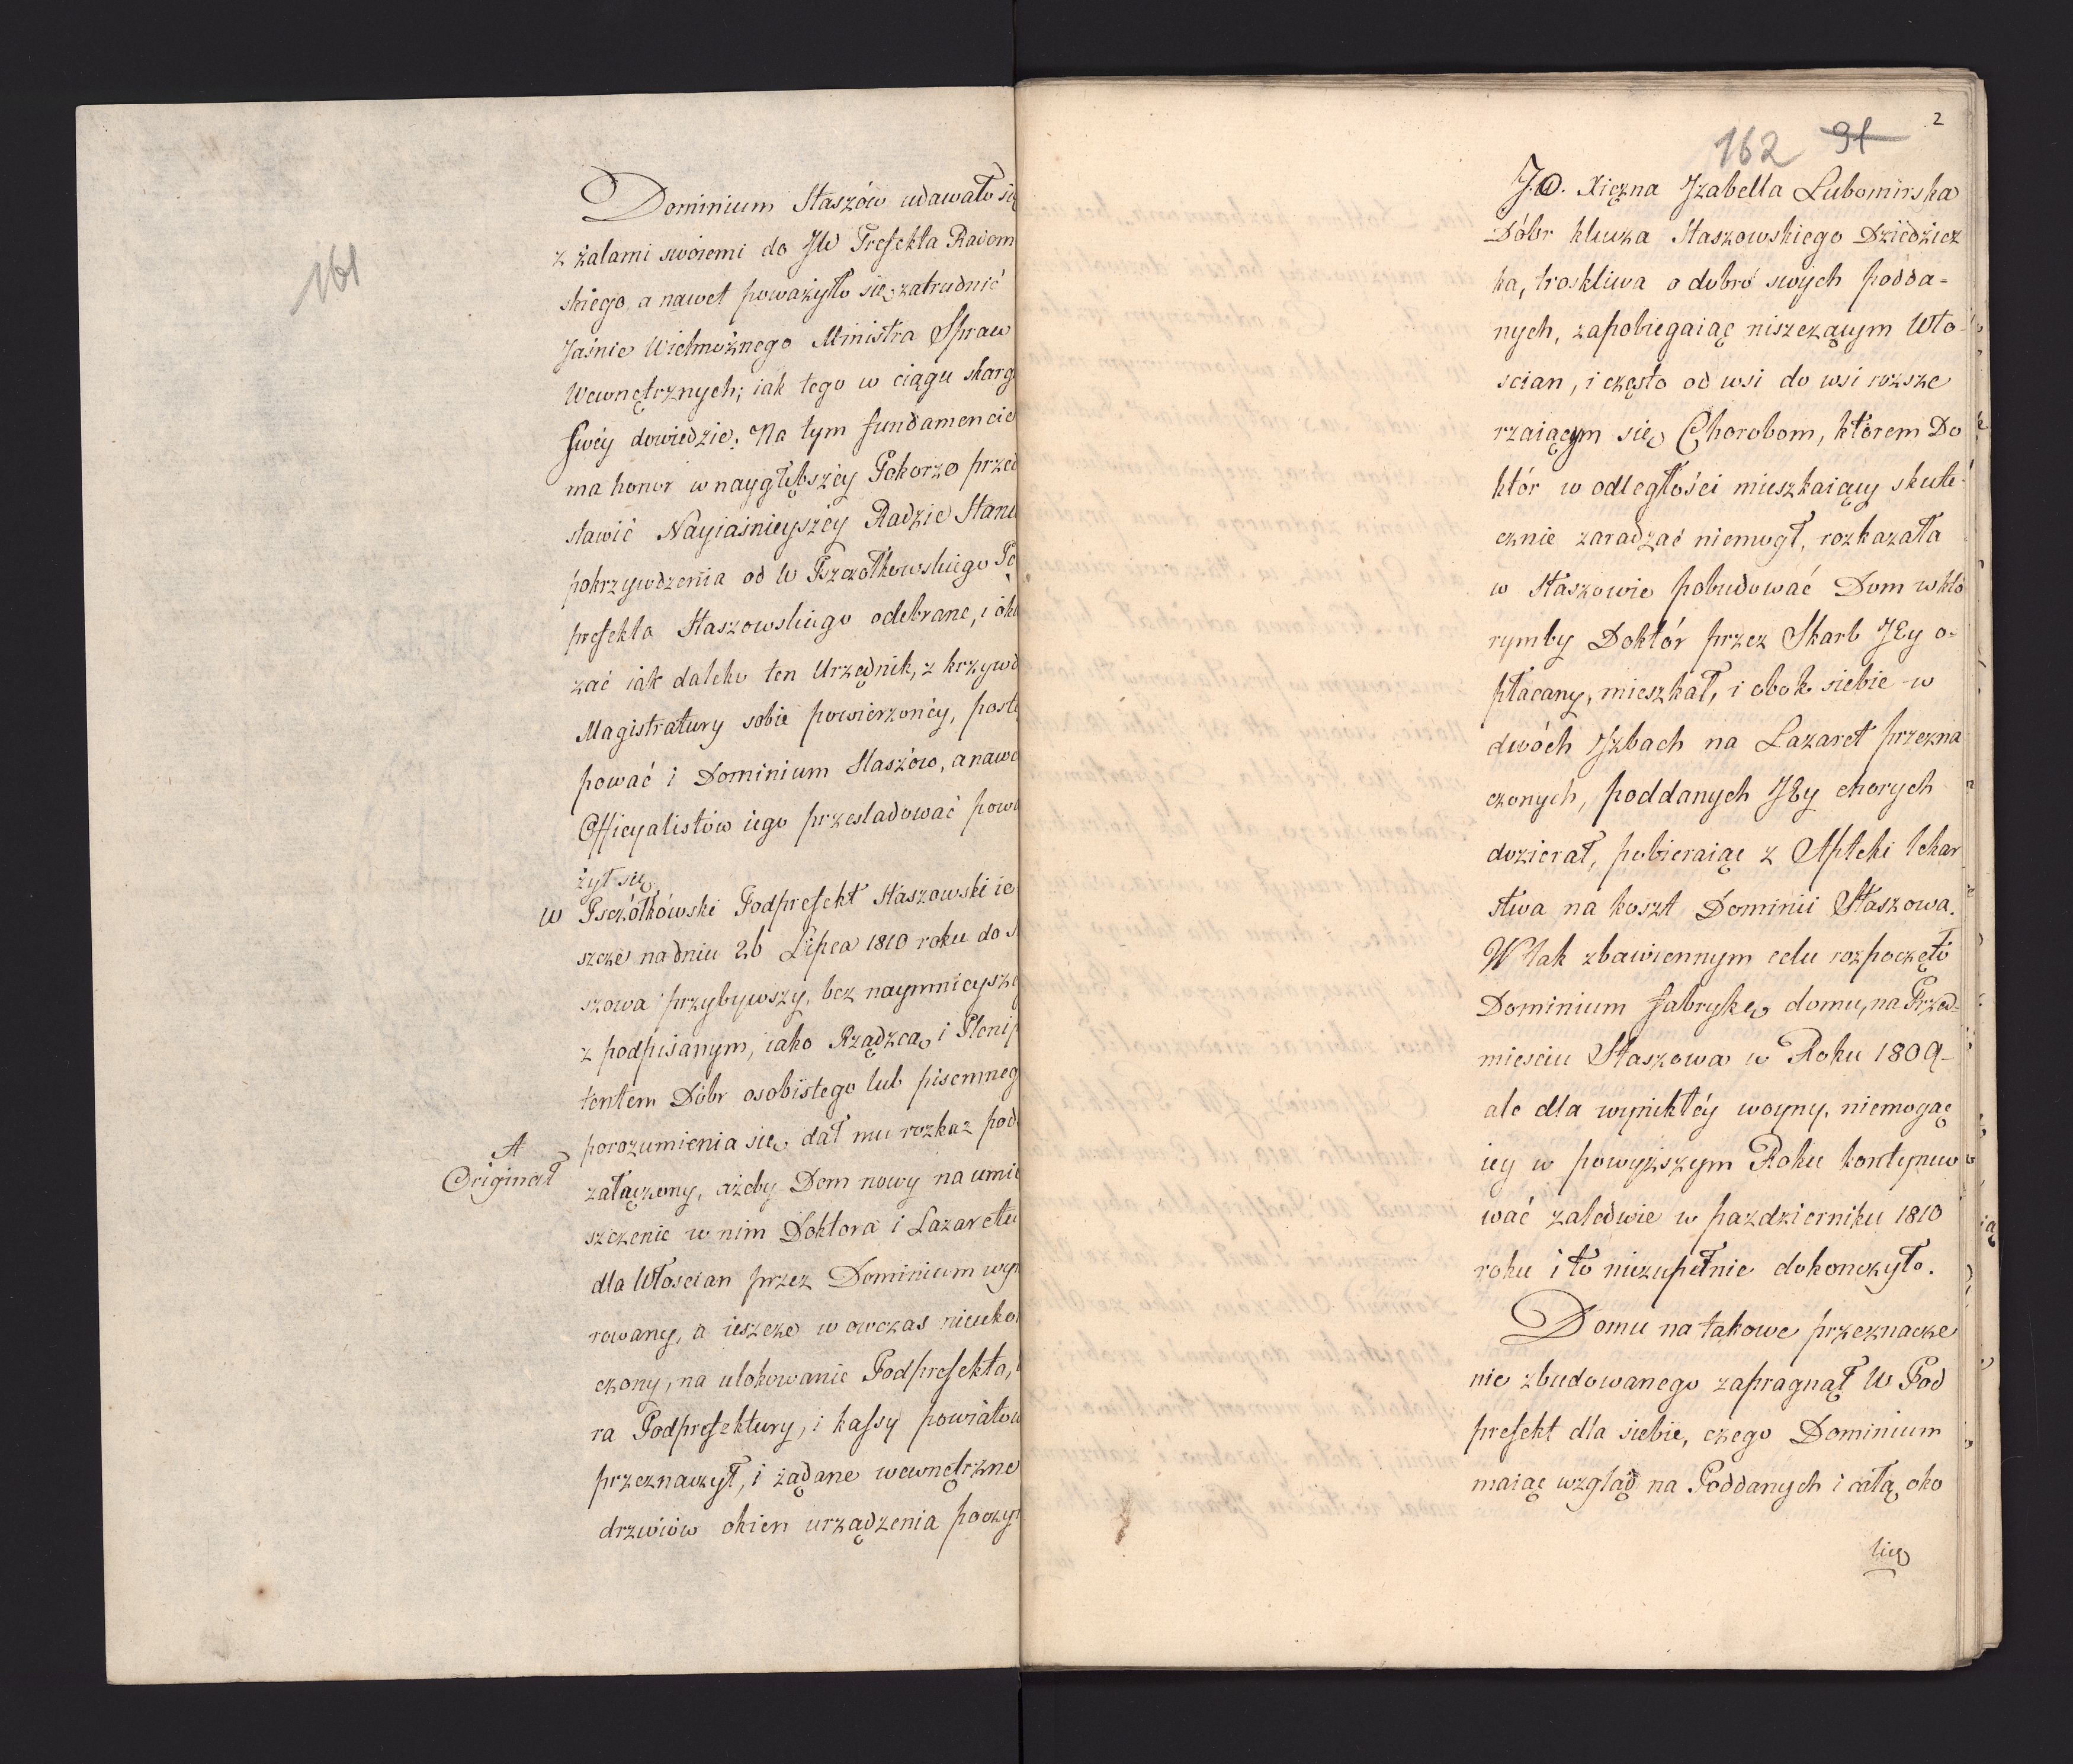 161
Dominium Staszów udawało się
z żalami swoiemi do JW Prefekta Radom
skiego, a nawet poważyło się zatrudnić
Jaśnie Wielmożnego Ministra Spraw
Wewnętrznych; iak tego w ciągu skarg
swéy dowiedzie. Na tym fundamencie
ma honor w naygłębszéy Pokorze przed
stawić Nayiaśnieyszéy Radzie Stanu
pokrzywdzenia od W Pszczółkowskiego Po
prefekta Staszowskiego odebrane, i oka
zać iak daleko ten Urzędnik, z krzywd
Magistratury sobie powierzonéy, postę
pować i Dominium Staszów, a nawe
Officyalistów iego prześladować powa
żył się
W Psczółkówski Podprefekt Staszowski ie
szcze na dniu 26 Lipca 1810 roku do S
szowa przybywszy, bez naymnieysze
z podpisanym, iako Rządzcą, i Plenip
tentem Dóbr osobistego lub pisemneg
porozumienia się, dał mu rozkaz pod
A
Originał
załączony, ażeby Dom nowy na umie
szczenie w nim Doktora i Lazaretu
dla Włoscian przez Dominium wy
rowany, a ieszcze w owczas nieuko
czony, na ulokowanie Podprefekta,
ra Podprefektury, i kassy powiatow
przeznaczył, i żądane wewnętrzne
drzwiów okien urządzenia poczy
2
162 91
J.O. Xiężna Jzabella Lubomirska
Dóbr klucza Staszowskiego Dziedzicz
ka, troskliwa o dobro swych podda=
nych, zapobiegaiąc niszczącym Wło
scian, i często od wsi do wsi rozsze
rzaiącym się Chorobom, którem Do
któr w odległości mieszkaiący skute
cznie zaradzać niemógł, rozkazała
w Staszowie pobudować Dom w któ
rymby Doktór przez Skarb JEy o=
płacany, mieszkał, i obok siebie w
dwóch Jzbach na Lazaret przezna
czonych, poddanych JEy chorych
dozierał, pobieraiąc z Apteki lekar
stwa na koszt Dominii Staszowa.
W tak zbawiennym celu rozpoczęło
Dominium fabrykę domu, na Przed=
miesciu Staszowa w Roku 1809
ale dla wynikłéy woyny, niemogąc
iey w powyższym Roku kontynuo
wać zaledwie w pazdzierniku 1810
roku i to niezupełnie dokonczyło.
Domu na takowe przeznacze
nie zbudowanego zapragnął W Pod
prefekt dla siebie, czego Dominium
maiąc wzgląd na Poddanych i całą oko
licę